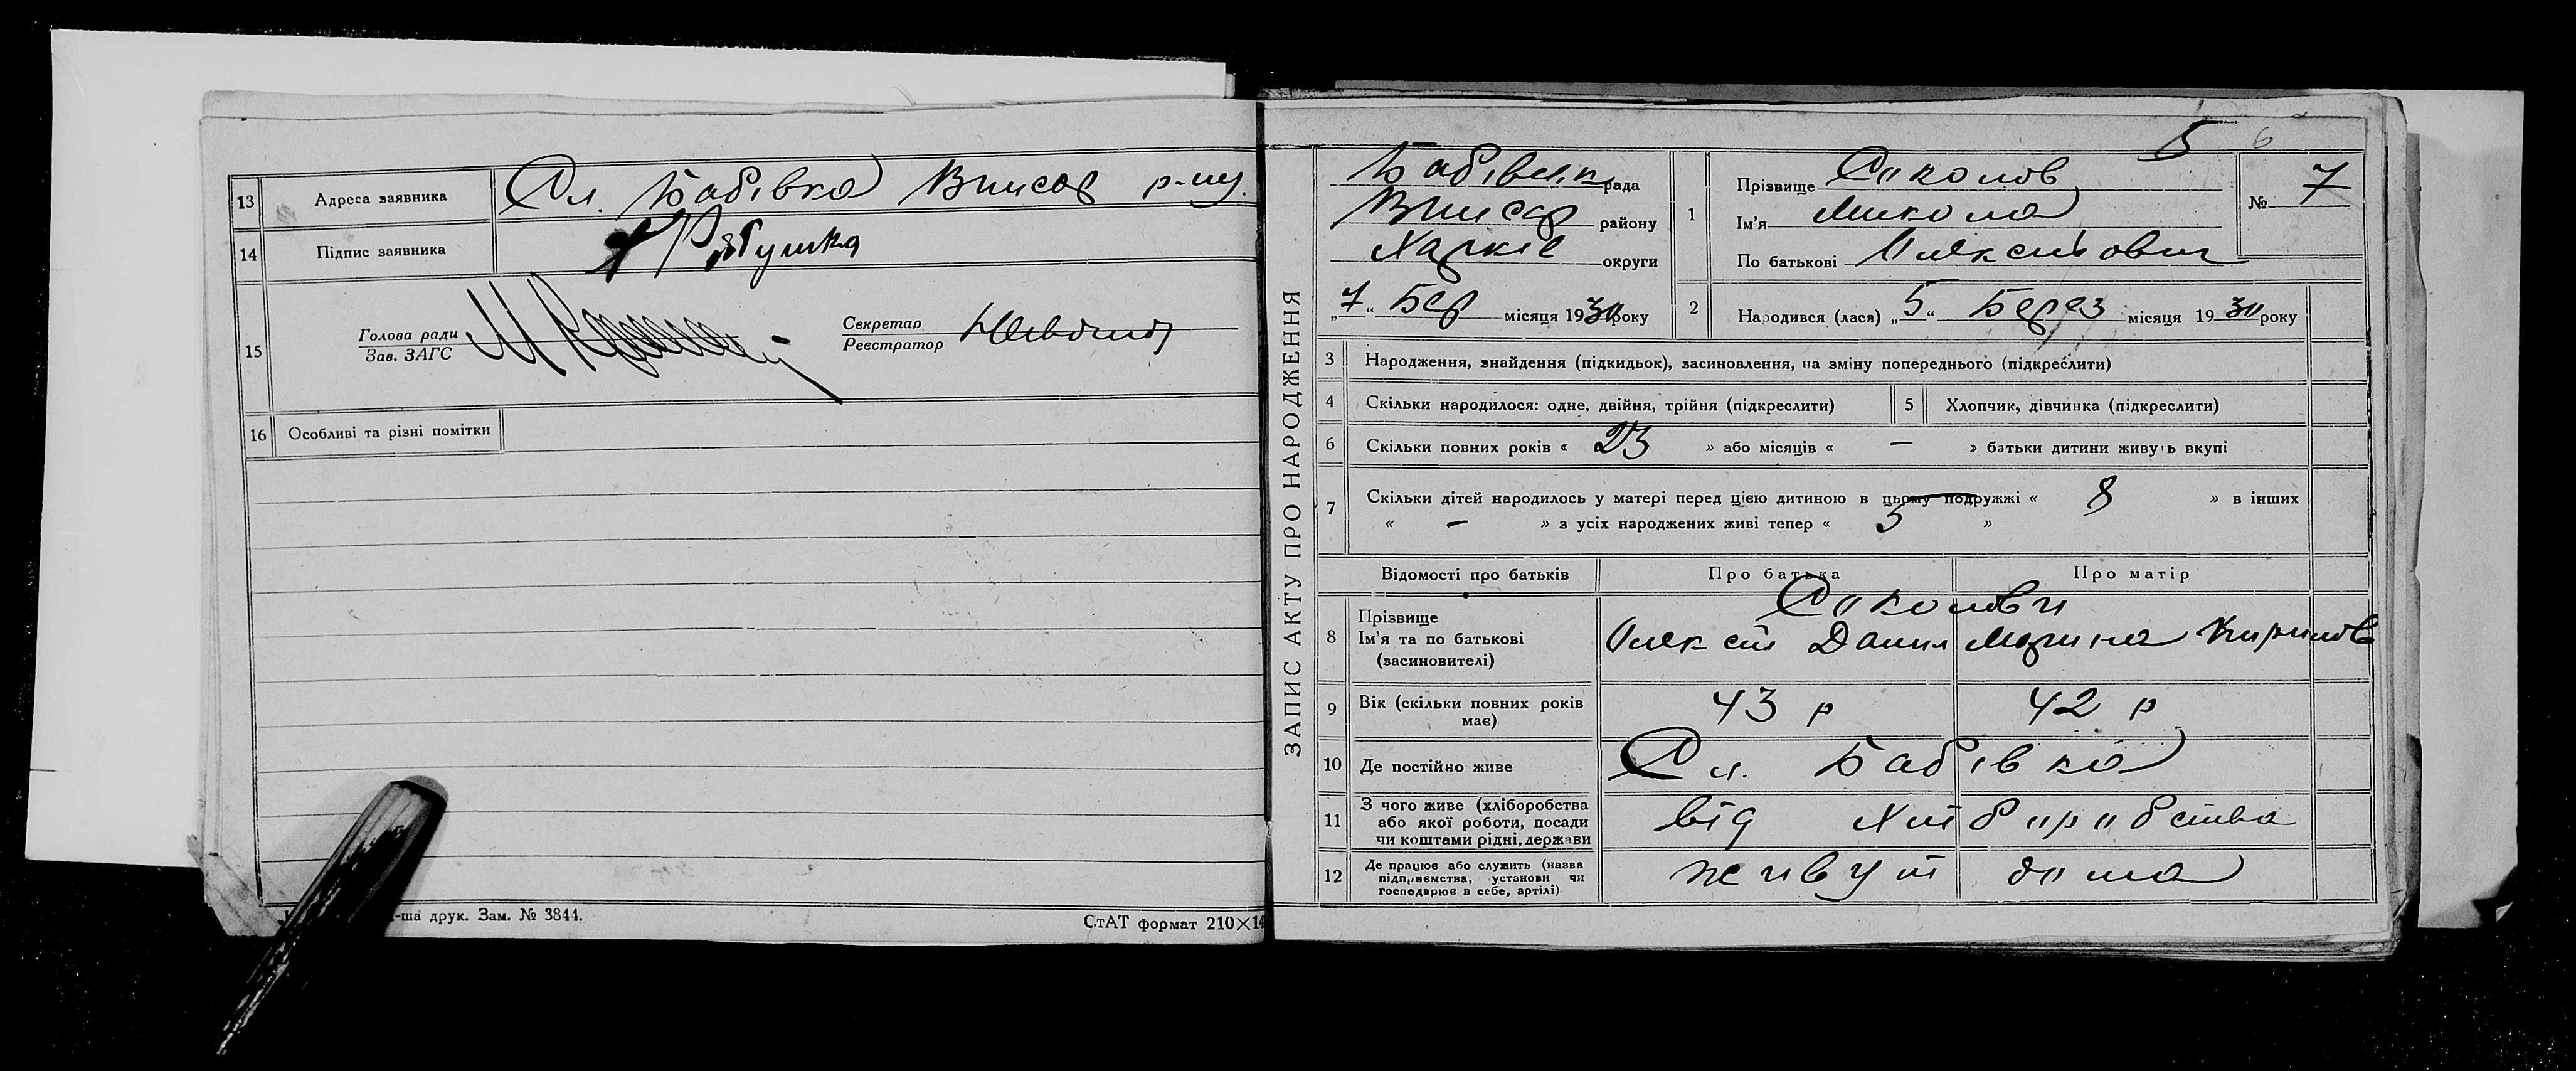 13 Адреса заявника Сл. Бабівка р-ну.
14 Підпис заявника Рябушка
15 Голова ради
Зав. ЗАГС
Секретар
Реєстратор
16 Особливі та різні помітки
-ша друк. Зам. № 3844.
СтАТ формат 210×14
5 6
ЗАПИС АКТУ ПРО НАРОДЖЕННЯ
рада
району
Харків округи
„7“ Бер місяця 1930 року
1 Прізвище Соколов
Ім'я Микола
По батькові Олексійович
№ 7
2 Народився (лася) „5“ Берез місяця 1930 року
3 Народження, знайдення (підкидьок), засиновлення, на зміну попереднього (підкреслити)
4 Скільки народилося: одне, двійня, трійня (підкреслити) 5 Хлопчик, дівчинка (підкреслити)
6 Скільки повних років « 23 » або місяців « — » батьки дитини живуть вкупі
7 Скільки дітей народилось у матері перед цією дитиною в цьому подружжі « 8 » в інших
« – » з усіх народжених живі тепер « 5 »
Відомості про батьків Про батька Про матір
8 Прізвище Соколови
Ім'я та по батькові Олексій Данил Марина Кирилов
(засиновителі)
9 Вік (скільки повних років 43 р 42 р
має)
10 Де постійно живе Сл. Бабівка
11 З чого живе (хліборобства від хліборобства
або якої роботи, посади
чи коштами рідні, держави
12 Де працює або служить (назва живут дома
підприємства, установи чи
господарює в себе, артілі)